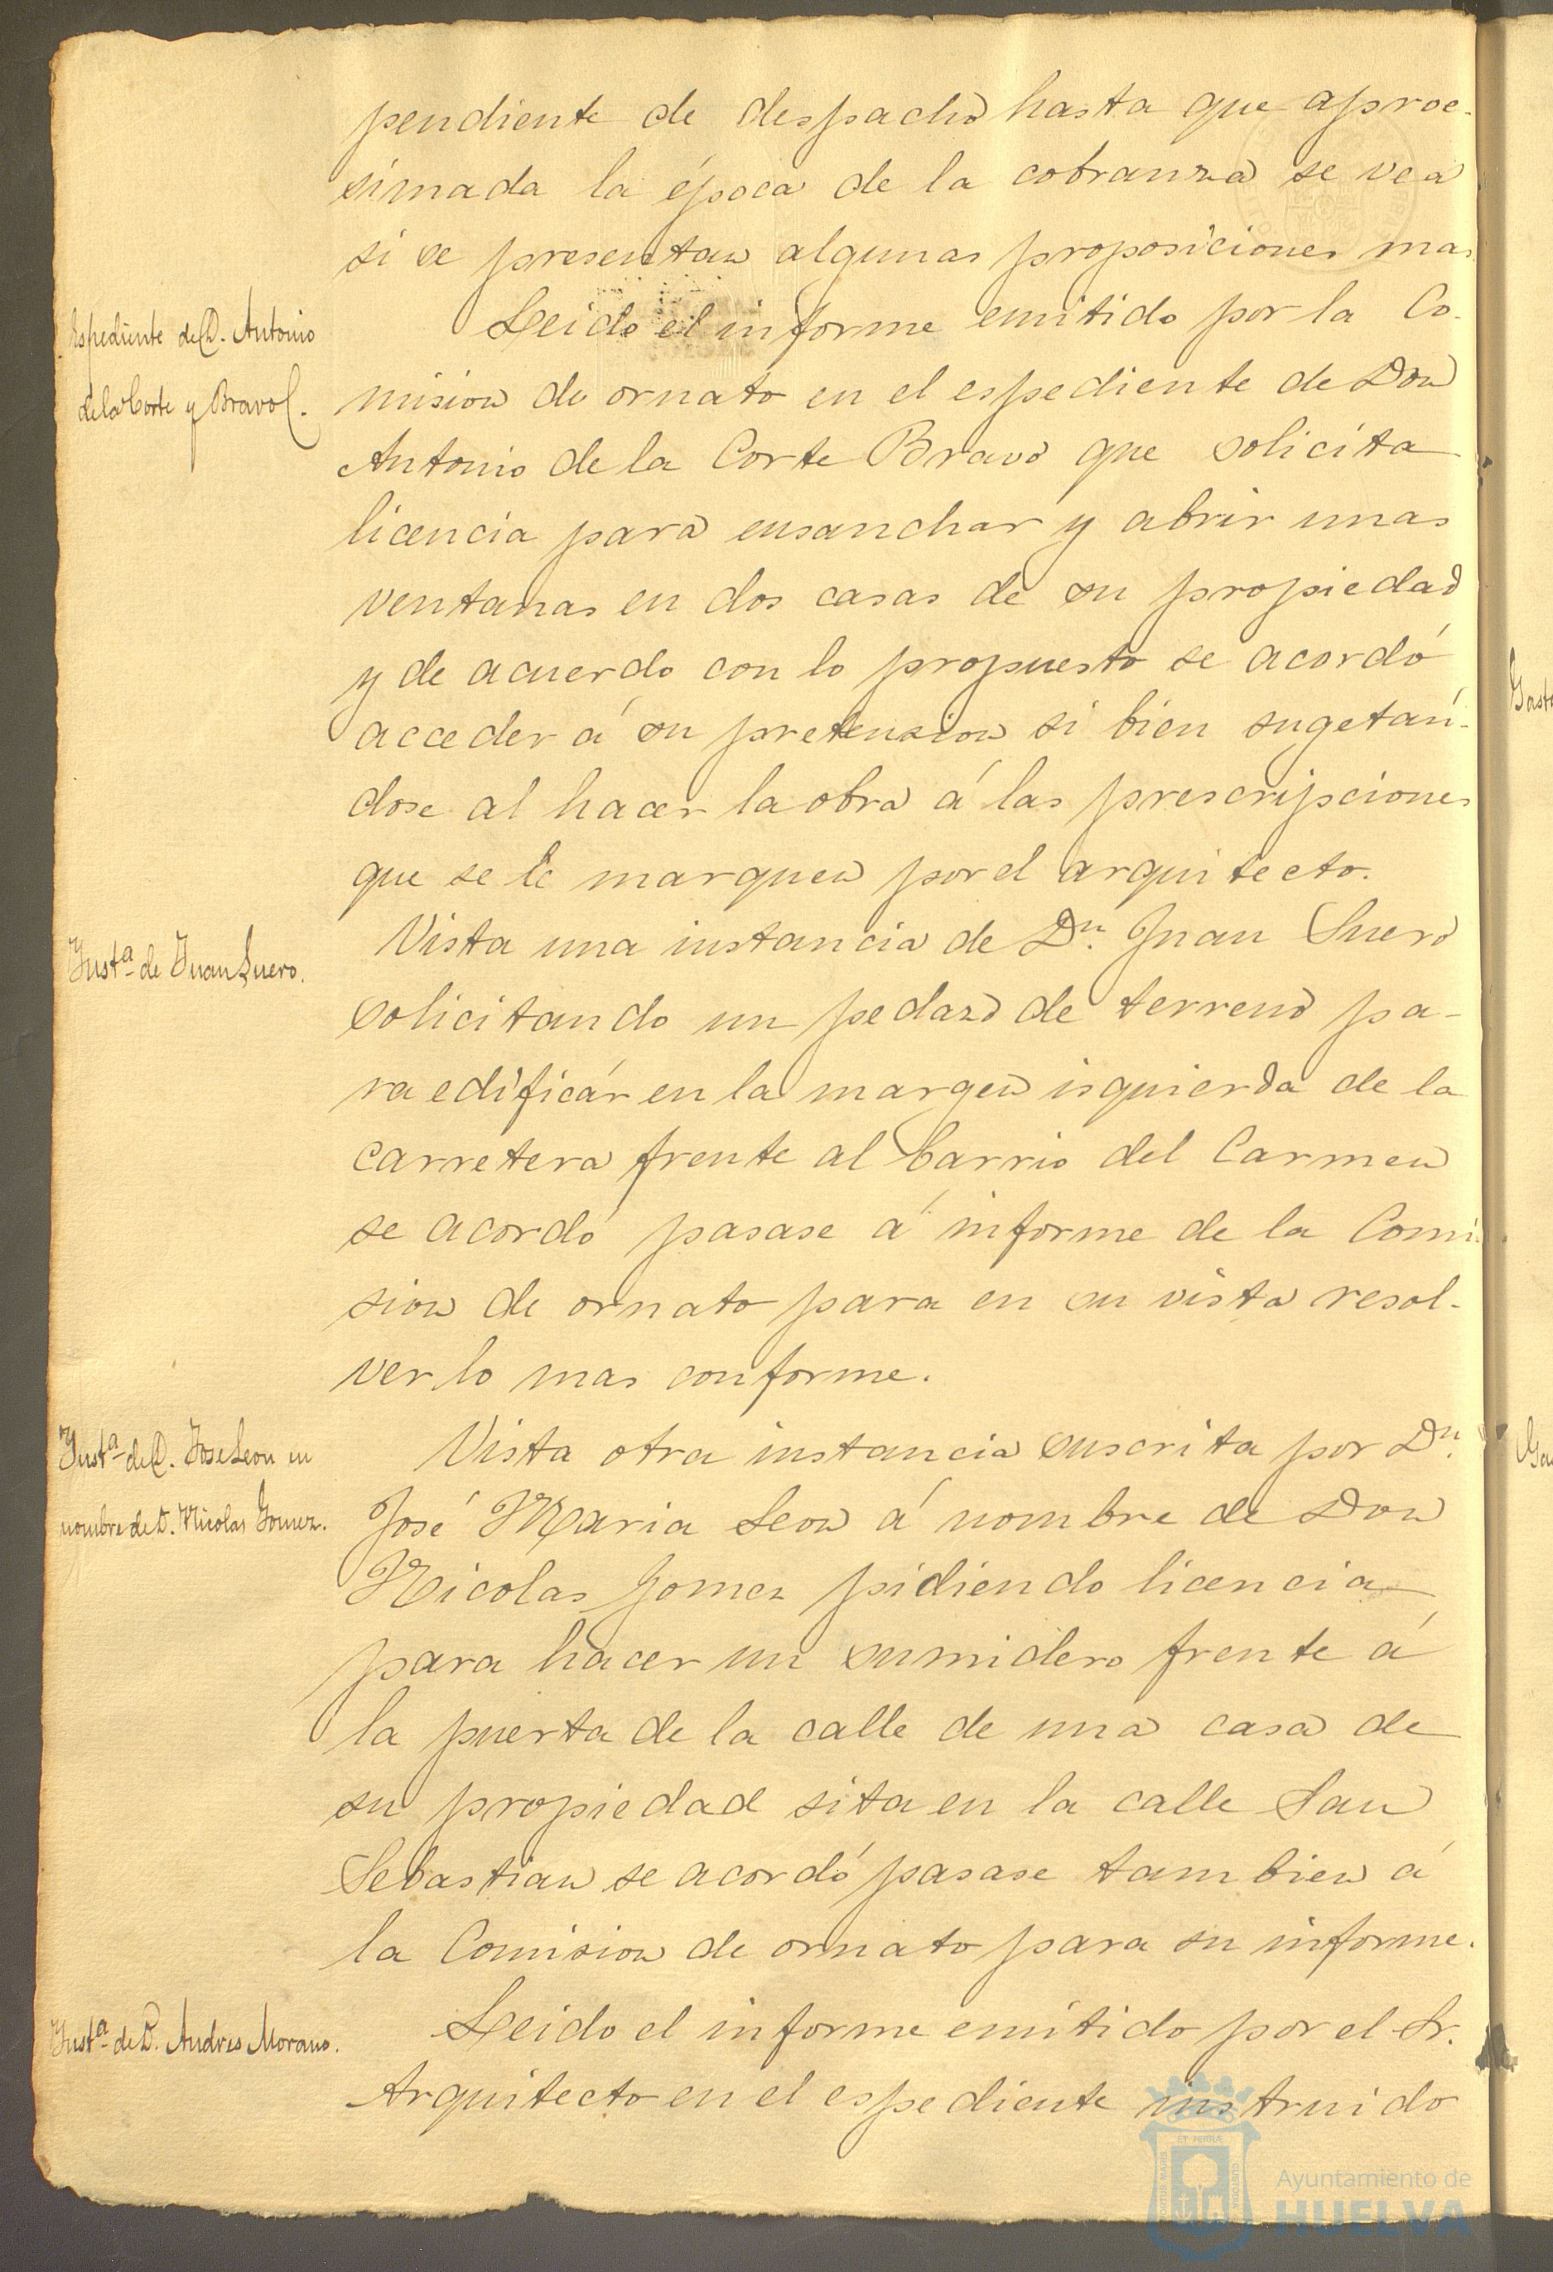 pendiente de despacho hasta que aproc-
simada la época de la cobranza se vea
si se presentan algunas proposiciones mas
Espediente de D. Antonio
de la Corte y Bravo.
Leido el informe emitido por la Co-
mision de ornato en el espediente de Don
Antonio de la Corte Bravo que solicita
licencia para ensanchar y abrir unas
ventanas en dos casas de su propiedad
y de acuerdo con lo propuesto se acordó
acceder á su pretension si bien sugetan-
dose al hacer la obra á las prescripciones
que se le marquen por el arquitecto.
Inst.ª de Juan Suero.
Vista una instancia de D.n Juan Suero
solicitando un pedazo de terreno pa-
ra edificár en la margen isquierda de la
carretera frente al barrio del Carmen
se acordó pasase á informe de la Comi
sion de ornato para en su vista resol-
ver lo mas conforme.
Inst.ª de D. Jose Leon en
nombre de D. Nicolas Gomez.
Vista otra instancia suscrita por D.n
José Maria Leon á nombre de Don
Nicolas Gomez pidiendo licencia
para hacer un sumidero frente á
la puerta de la calle de una casa de
su propiedad sita en la calle San
Sebastian se acordó pasase tambien á
la Comision de ornato para su informe.
Inst.ª de D. Andres Morano.
Leido el informe emitido por el Sr.
Arquitecto en el espediente instruido
Ayuntamiento de
HUELVA